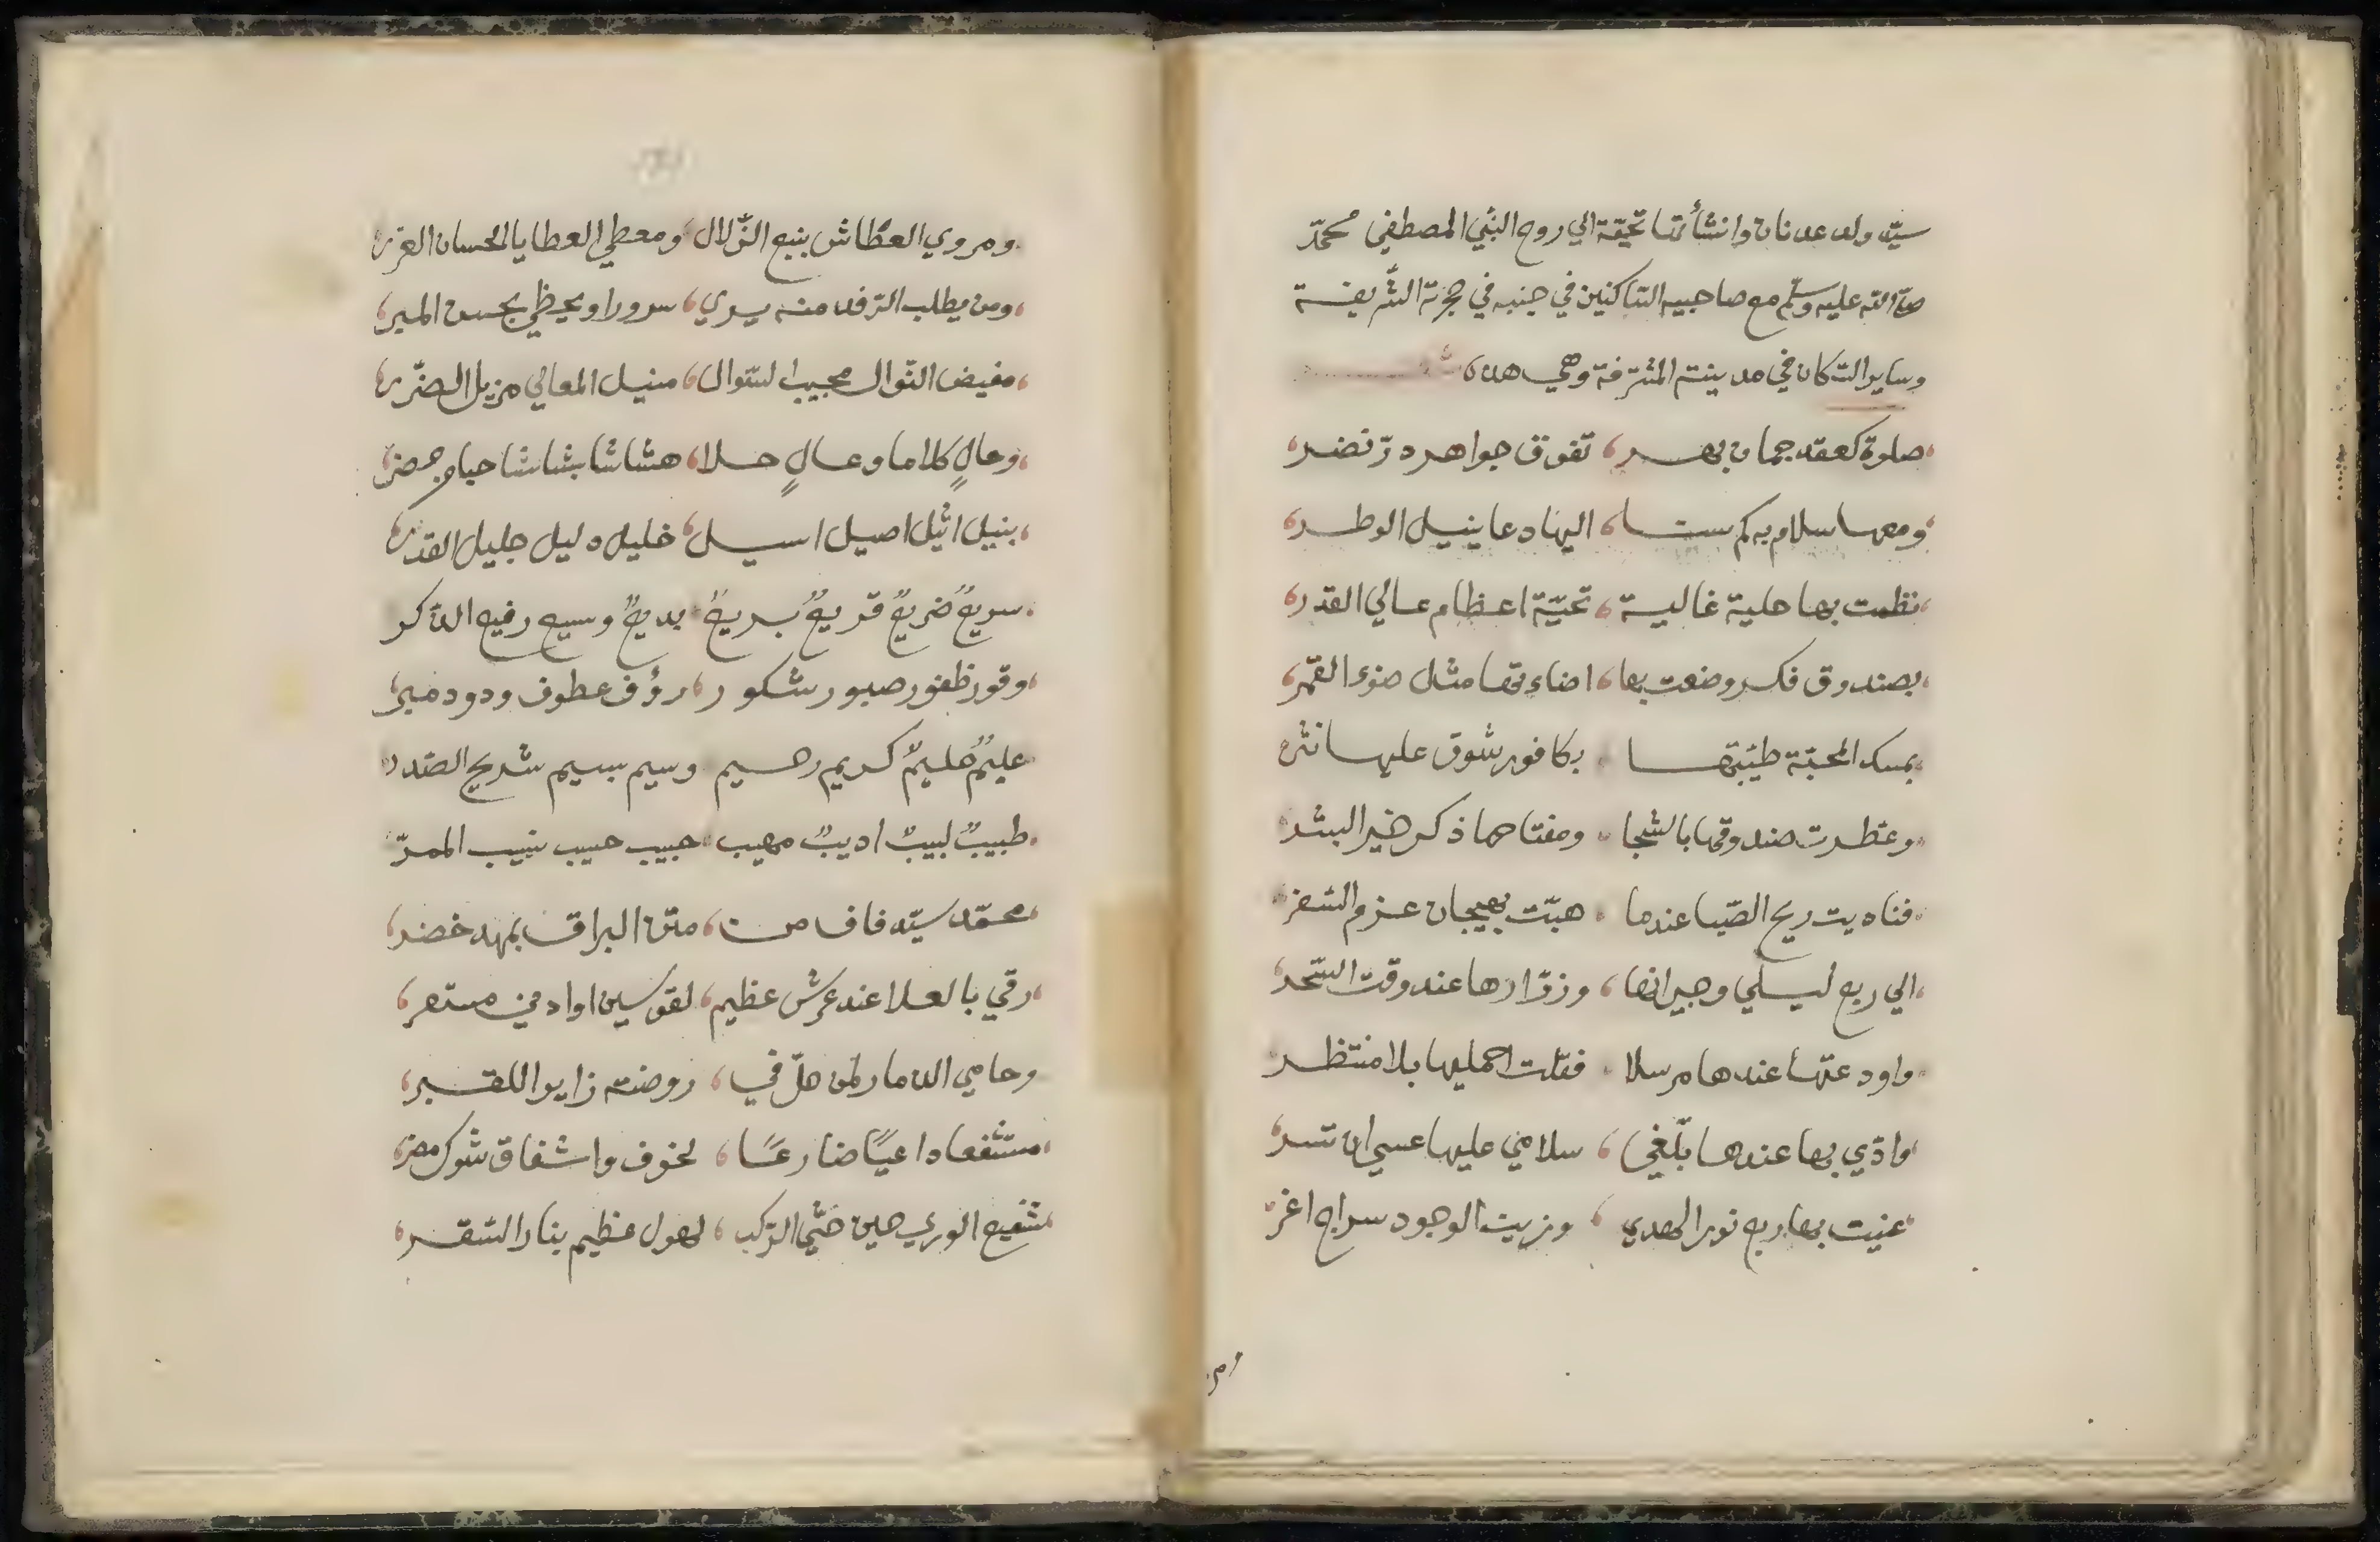 سيّد ولد عدنان وانشأتها تحيّة الي روح النبي المصطفي محمّد
صلّى الله عليه وسلّم مع صاحبيه السّاكنين في جنبه في حجرته الشّريفة
وساير السّكان في مدينته المشرّفة وهي هذه
صلوة كعقد جمان بهر، تفوق جواهر درّ نضر،
ومعها سلام به كم سنا، اليها دعا ينيل الوطر،
نظمت بها حلية غالية، تحيّة اعظام عالي القدر،
بصندوق فكر وضعت بها، اضاءتها مثل ضوء القمر،
بمسك المحبّة طيّبتها، بكافور شوق عليها نثر
وعطّرت صندوقها بالشجا، ومفتاحها ذكر خير البشر
فناديت ريح الصّبا عندما، هبّت بهيجان عزم السّفر
الي ربع ليلي وجيرانها، وزوّارها عند وقت السّحر
واودعتها عندها مرسلا، فقلت احمليها بلا منتظر
وادّي بها عندها بلّغي، سلامي عليها عسي ان تسر،
عنيت بها ربع نور الهدي، وزين الوجود سراج اغر
ومر
ومروي العطّاش بنبع الزّلال، ومعطي العطايا الحسان الغرر
ومن يطلب الرّفد منه يري، سرورا ويحظي بحسن المير،
مفيض النّوال مجيب السّوال، منيل المعالي مزيل الضّرر،
وحالٍ كلاما وعالٍ حلا، هشاشا بشاشا حباه
نبيل اثيل اصيل اسيل، خليل دليل جليل القدر،
سريعٌ ضريعٌ قريعٌ بريعٌ، بديعٌ وسيع رفيع الذّكر
وقور ظفور صبور شكور، رؤف عطوف ودود مبر،
عليمٌ حليمٌ كريم رحيم، وسيم بسيم شريح الصّدر
طبيبٌ لبيبٌ اديبٌ مهيب، حبيب حسيب نسيب الممرّ
محمّد سيّد فاق من، متن البراق بمهد خضر،
رقي بالعلا عند عرش عظيم، لقوسين او ادني مستمر،
وحامي الذمار لمن حلّ في، روضته زايرا للقبر،
مستشفعا داعيًا ضارعًا، لخوف واشفاق شوك مضر
شفيع الوري حين جثّي الرّكب، لهول عظيم بنار السّقر،